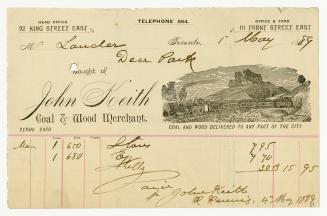 HEAD OFFICE
92 KING STREET EAST
TELEPHONE 864.
OFFICE & YARD
111 FRONT STREET EAST
Mr Lauder
Toronto, 1 May 1889
Deer Park
Bought of
John Keith
Coal & Wood Merchant.
TERMS CASH
COAL AND WOOD DELIVERED TO ANY PART OF THE CITY
1 650 Stove 7 95
1 680 Egg 7 70
15 95
John Keith
4 May 1889